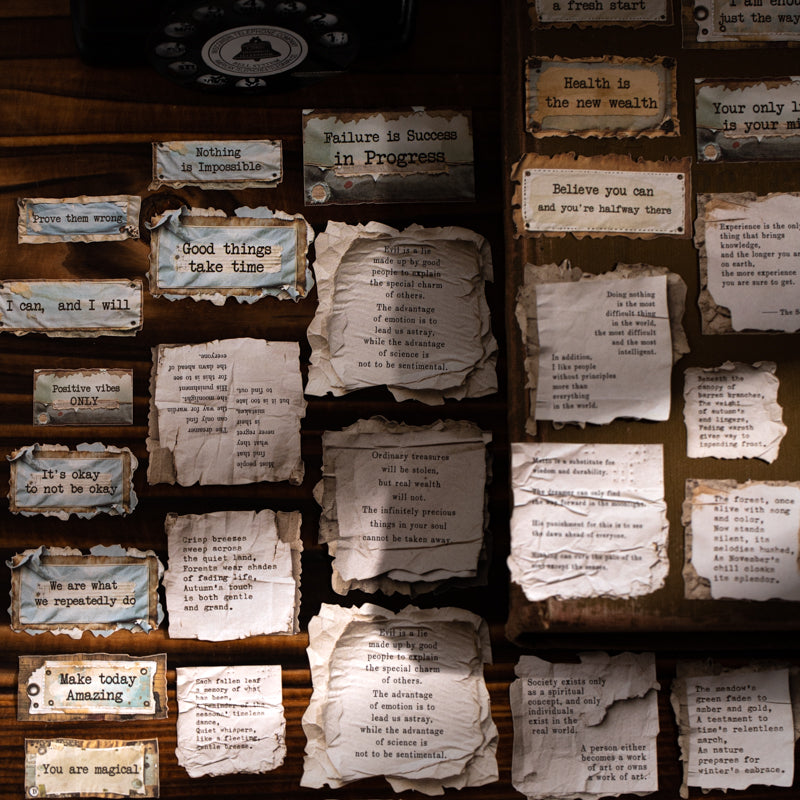 a fresh start
I am enou
just the way
Health is
the new wealth
Your only li
is your mi
Failure is Success
in Progress
Nothing
is Impossible
Believe you can
and you're halfway there
Prove them wrong
Good things
take time
I can, and I will
Experience is the only
thing that brings
knowledge,
and the longer you are
on earth,
the more experience
you are sure to get.
Evil is a lie
made up by good
people to explain
the special charm
of others.
The advantage
of emotion is to
lead us astray,
while the advantage
of science is
not to be sentimental.
Doing nothing
is the most
difficult thing
in the world,
the most difficult
and the most
intelligent.
In addition,
I like people
without principles
more than
everything
in the world.
Most people
find that
what they
never regret
is their
mistakes,
to find out.
The dreamer
can only find
the way forward
the moonlight.
His punishment
for this is to see
the dawn ahead of
everyone.
Positive vibes
ONLY
Beneath the
canopy of
barren branches,
The weight
of autumn's
end lingers,
Fading warmth
gives way to
impending frost.
It's okay
to not be okay
Ordinary treasures
will be stolen,
but real wealth
will not.
The infinitely precious
things in your soul
cannot be taken away.
is a substitute for
wisdom and durability.
The dreamer can only find
the way forward in the moonlight.
His punishment for this is to see
the dawn ahead of everyone.
Nothing can cure the pain of the
soul except the senses.
The forest, once
alive with song
and color,
Now stands
silent, its
melodies hushed,
As November's
chill cloaks
its splendor.
Crisp breezes
sweep across
the quiet land,
Forests wear shades
of fading life,
Autumn's touch
is both gentle
and grand.
We are what
we repeatedly do
Make today
Amazing
You are magical
Each fallen leaf
a memory of what
has been,
A reminder of the
seasons' timeless
dance,
Quiet whispers,
like a fleeting,
gentle breeze.
Evil is a lie
made up by good
people to explain
the special charm
of others.
The advantage
of emotion is to
lead us astray,
while the advantage
of science is
not to be sentimental.
Society exists only
as a spiritual
concept, and only
individuals
exist in the
real world.
A person either
becomes a work
of art or owns
a work of art.
The meadow's
green fades to
amber and gold,
A testament to
time's relentless
march,
As nature
prepares for
winter's embrace.